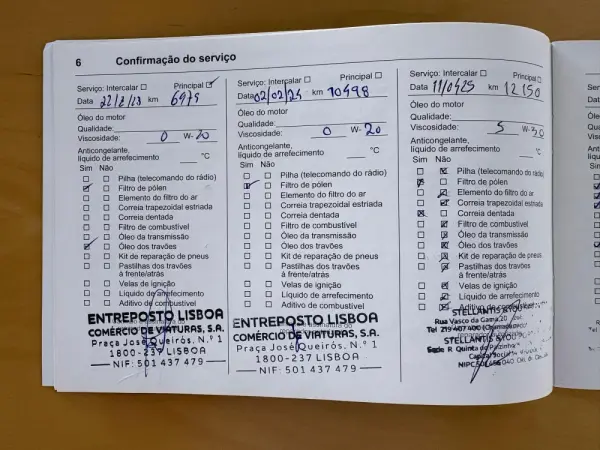 6 Confirmação do serviço
Serviço: Intercalar □ Principal ☑
Data 22/2/23 km 6979
Óleo do motor
Qualidade:
Viscosidade: 0 W- 20
Anticongelante,
líquido de arrefecimento °C
Sim Não
□ □ Pilha (telecomando do rádio)
☑ □ Filtro de pólen
□ □ Elemento do filtro do ar
□ □ Correia trapezoidal estriada
□ □ Correia dentada
□ □ Filtro de combustível
□ □ Óleo da transmissão
☑ □ Óleo dos travões
□ □ Kit de reparação de pneus
□ □ Pastilhas dos travões
à frente/atrás
□ □ Velas de ignição
□ □ Líquido de arrefecimento
□ □ Aditivo de combustível
ENTREPOSTO LISBOA
COMÉRCIO DE VIATURAS, S.A.
Praça José Queirós, N.º 1
1800-237 LISBOA
NIF: 501 437 479
Serviço: Intercalar □ Principal □
Data 02/02/24 km 10498
Óleo do motor
Qualidade:
Viscosidade: 0 W- 20
Anticongelante,
líquido de arrefecimento °C
Sim Não
□ □ Pilha (telecomando do rádio)
☑ □ Filtro de pólen
□ □ Elemento do filtro do ar
□ □ Correia trapezoidal estriada
□ □ Correia dentada
□ □ Filtro de combustível
□ □ Óleo da transmissão
□ □ Óleo dos travões
□ □ Kit de reparação de pneus
□ □ Pastilhas dos travões
à frente/atrás
□ □ Velas de ignição
□ □ Líquido de arrefecimento
□ □ Aditivo de combustível
ENTREPOSTO LISBOA
COMÉRCIO DE VIATURAS, S.A.
Praça José Queirós, N.º 1
1800-237 LISBOA
NIF: 501 437 479
Serviço: Intercalar □ Principal □
Data 11/04/25 km 12150
Óleo do motor
Qualidade:
Viscosidade: 5 W- 30
Anticongelante,
líquido de arrefecimento °C
Sim Não
□ ☒ Pilha (telecomando do rádio)
☒ □ Filtro de pólen
□ ☒ Elemento do filtro do ar
□ ☒ Correia trapezoidal estriada
☒ □ Correia dentada
□ ☒ Filtro de combustível
□ ☒ Óleo da transmissão
□ ☒ Óleo dos travões
□ ☒ Kit de reparação de pneus
□ ☒ Pastilhas dos travões
à frente/atrás
□ ☒ Velas de ignição
□ ☒ Líquido de arrefecimento
□ ☒ Aditivo de combustível
STELLANTIS &YOU
Rua Vasco da Gama, 20
Tel 219 407 400
STELLANTIS &YOU
Sede R Quinta do
Capital Social
NIPC